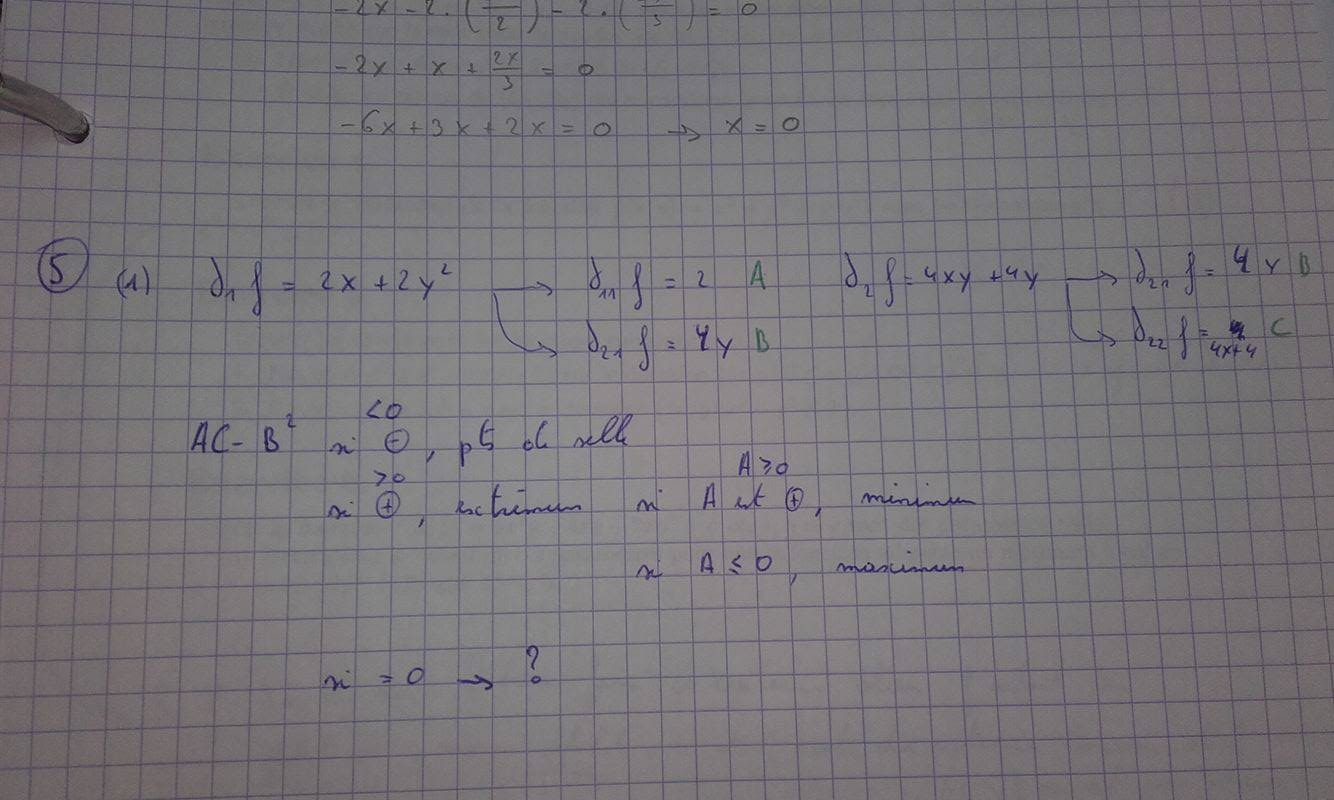 -2x - 2·( /2) - 2·( /3) = 0
-2x + x + 2x/3 = 0
-6x + 3x + 2x = 0 → x = 0
5 (1) ∂₁f = 2x + 2y² → ∂₁₁f = 2 A ∂₂f = 4xy + 4y → ∂₂₁f = 4y B
→ ∂₂₁f = 4y B → ∂₂₂f = 4x+4 C
<0
AC - B² si ⊖, pt de selle
>0 A ≥ 0
si ⊕, extrémum si A est ⊕, minimum
si A ≤ 0, maximum
si = 0 → ?